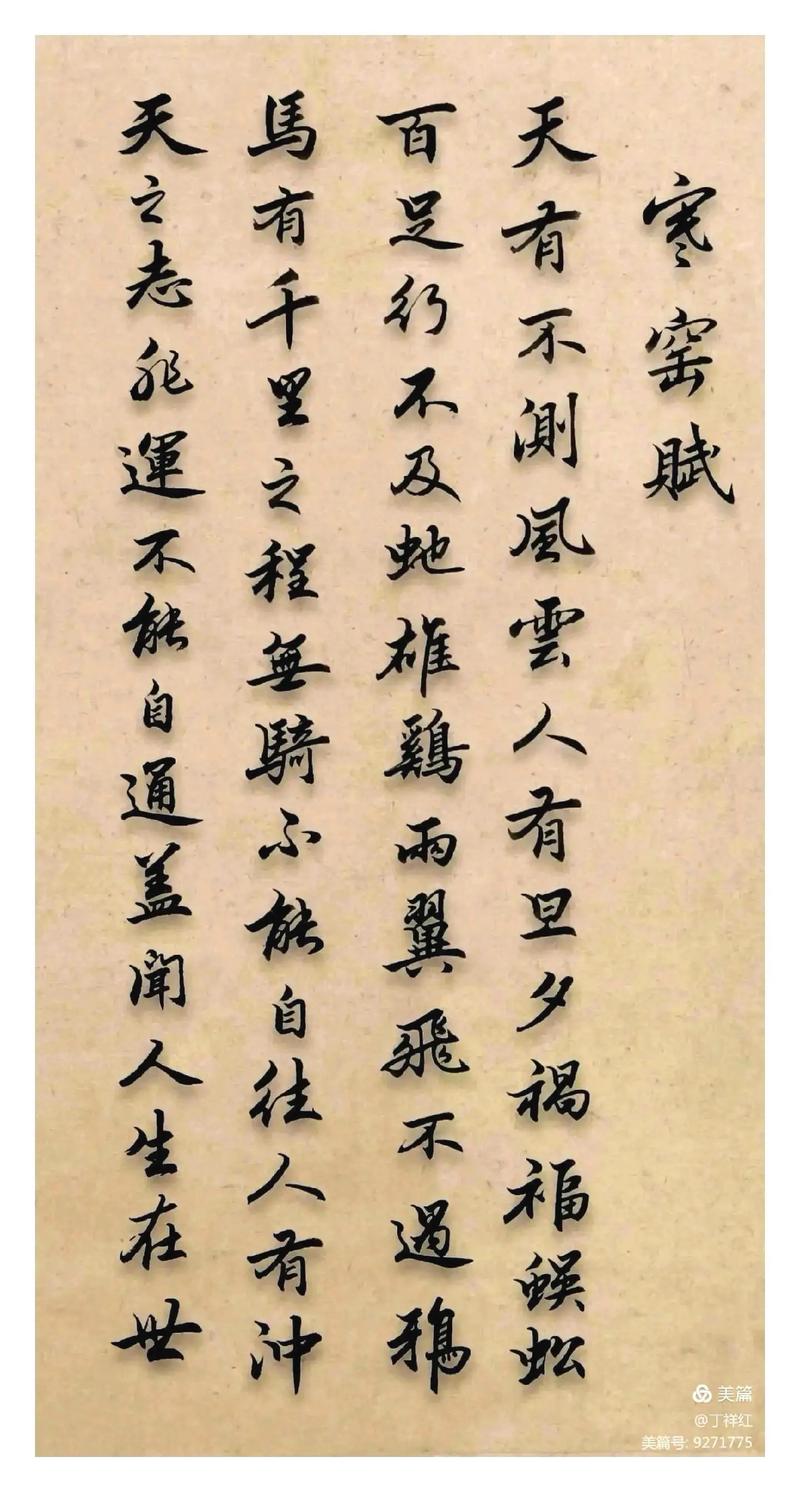 寒窑賦
天有不測風雲人有旦夕禍福蜈蚣
百足行不及虵雄鷄兩翼飛不過鴉
馬有千里之程無騎不能自往人有沖
天之志非運不能自通盖聞人生在世
美篇
@丁祥红
美篇号: 9271775